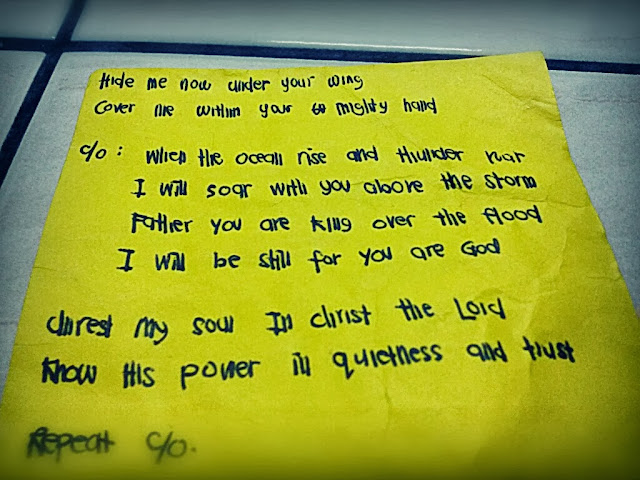 Hide me now under your wing
Cover me within your mighty hand
c/o : When the ocean rise and thunder roar
I will soar with you above the storm
Father you are king over the flood
I will be still for you are God
my soul In christ the Lord
Know His power in quietness and trust
Repeat c/o.